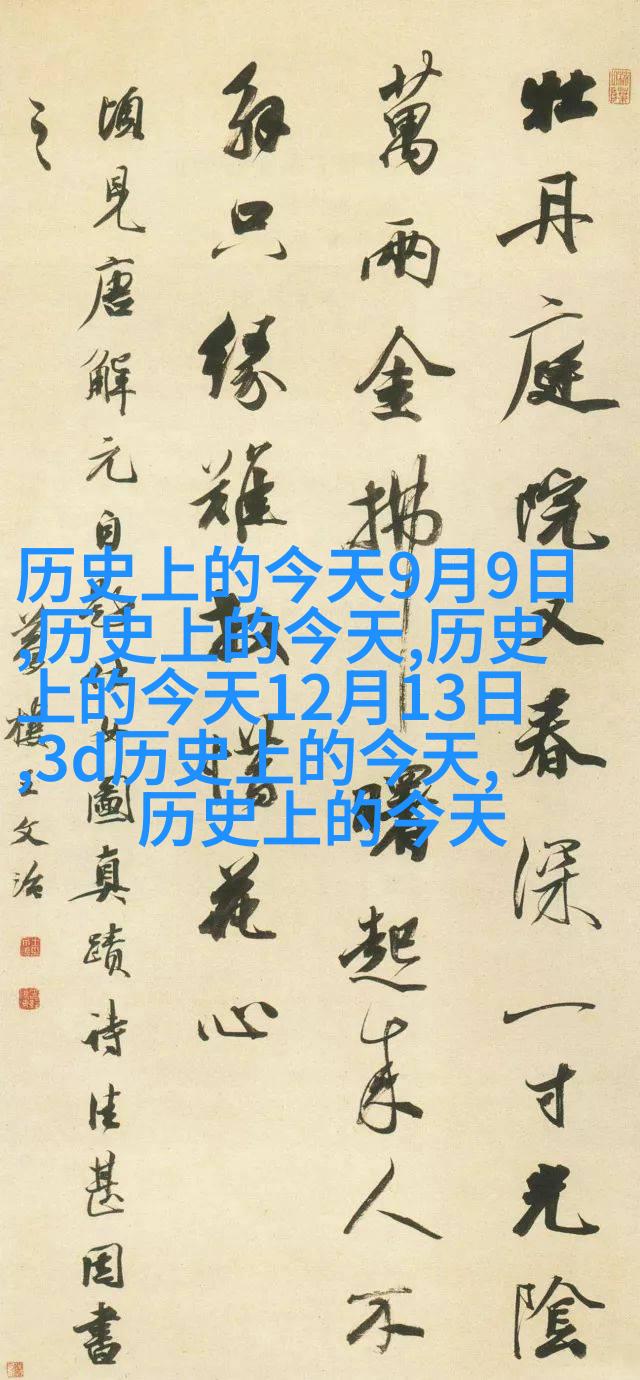 牡丹庭院又春深一寸光陰
萬兩金拂曙起來人不
解只緣難放惜花心
頃見唐解元自題仕女圖真蹟詩佳甚因書
之
夢樓王文治
历史上的今天9月9日
,历史上的今天,历史
上的今天12月13日
,3d历史上的今天,
历史上的今天